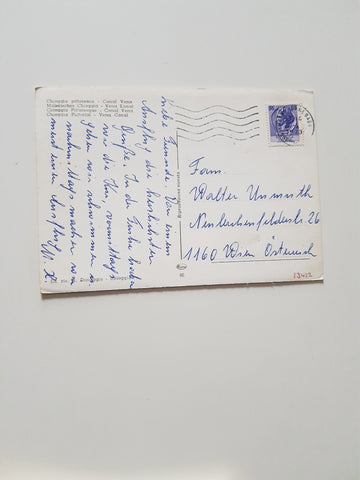 Chioggia pittoresca - Canal Vena
Malerisches Chioggia - Vena Kanal
Chioggia Pittoresque - Canal Vena
Chioggia Pictorial - Vena Canal
Liebe Freunde. Von einem
Ausflug die herzlichsten
Grüße. In der Früh
wir die Kur, vormittags
gehen wir schwimmen u.
nachmittags machen wir
meist einen Ausflug.
Fam.
Walter Unmuth
Neulerchenfelderstr. 26
1160 Wien Österreich
13412